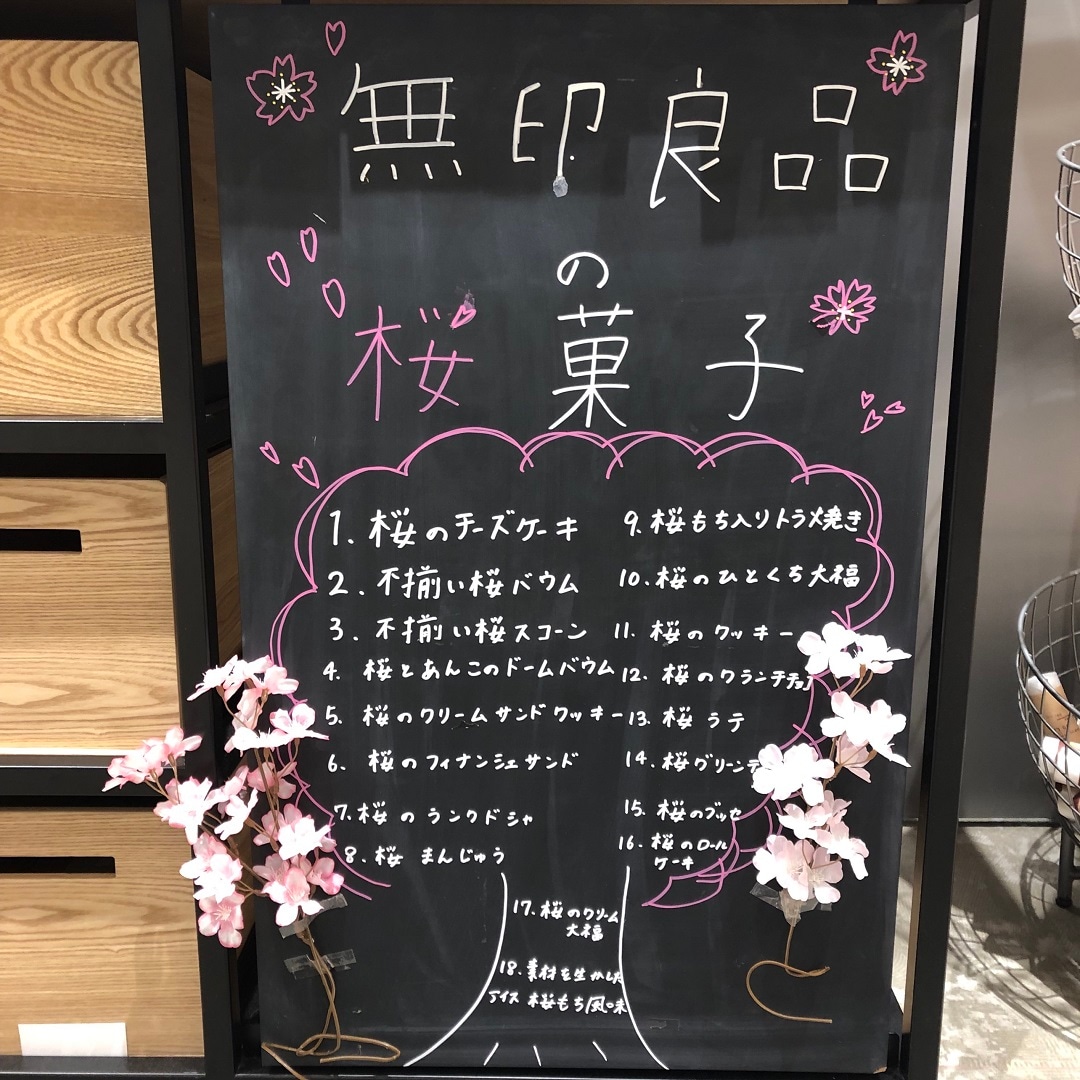 無印良品
の
桜菓子
1. 桜のチーズケーキ
2. 不揃い桜バウム
3. 不揃い桜スコーン
4. 桜とあんこのドームバウム
5. 桜のクリームサンドクッキー
6. 桜のフィナンシェサンド
7. 桜のラングドシャ
8. 桜 まんじゅう
9. 桜もち入りトラメ焼き
10. 桜のひとくち大福
11. 桜のクッキー
12. 桜のクランチチョコ
13. 桜ラテ
14. 桜グリーンテ
15. 桜のブッセ
16. 桜のロール
ケーキ
17. 桜のクリーム
大福
18. 素材を生かした
アイス 桜もち風味